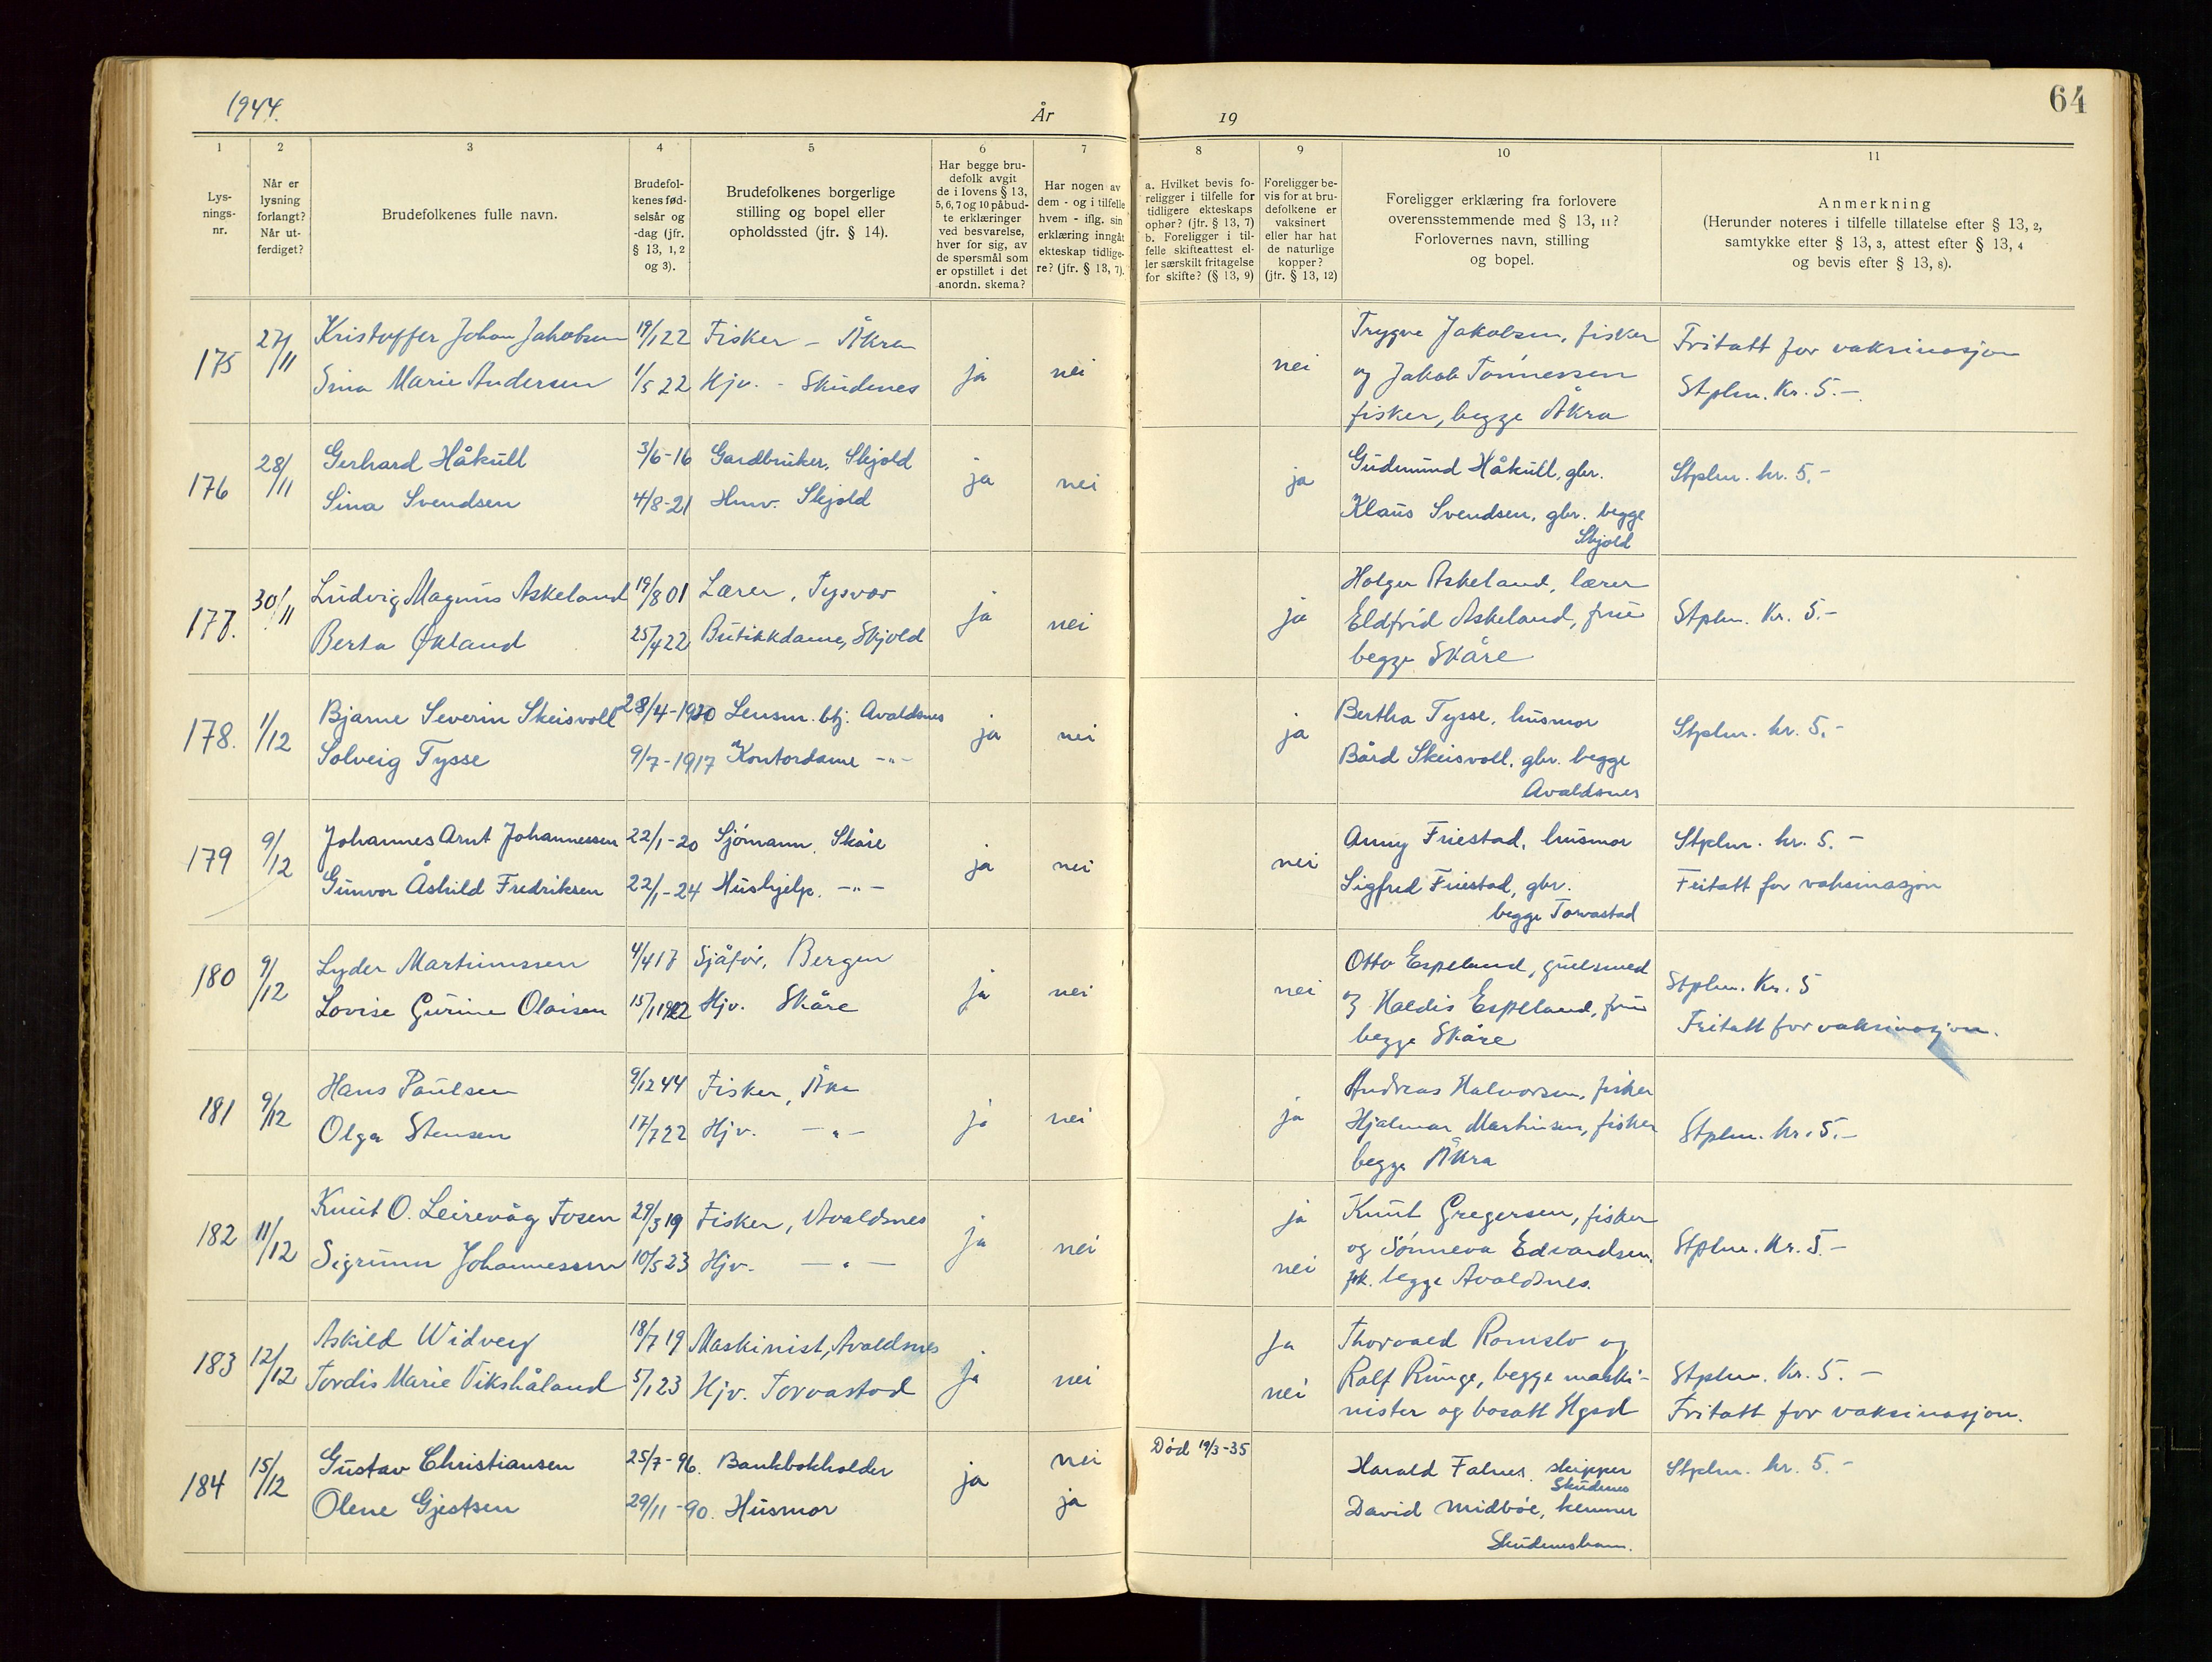 1944.
År
19
64
1
2
3
4
5
6
7
8
9
10
11
Lys-
nings-
nr.
Når er
lysning
forlangt?
Når ut-
ferdiget?
Brudefolkenes fulle navn.
Brudefol-
kenes fød-
selsår og
-dag (jfr.
§ 13, 1, 2
og 3).
Brudefolkenes borgerlige
stilling og bopel eller
opholdssted (jfr. § 14).
Har begge bru-
defolk avgit
de i lovens § 13,
5, 6, 7 og 10 påbud-
te erklæringer
ved besvarelse,
hver for sig, av
de spørsmål som
er opstillet i det
anordn. skema?
Har nogen av
dem - og i tilfelle
hvem - iflg. sin
erklæring inngåt
ekteskap tidlige-
re? (jfr. § 13, 7).
a. Hvilket bevis fo-
religger i tilfelle for
tidligere ekteskaps
ophør? (jfr. § 13, 7)
b. Foreligger i til-
felle skifteattest el-
ler særskilt fritagelse
for skifte? (§ 13, 9)
Foreligger be-
vis for at bru-
defolkene er
vaksinert
eller har hat
de naturlige
kopper?
(jfr. § 13, 12)
Foreligger erklæring fra forlovere
overensstemmende med § 13, 11?
Forlovernes navn, stilling
og bopel.
Anmerkning
(Herunder noteres i tilfelle tillatelse efter § 13, 2,
samtykke efter § 13, 3, attest efter § 13, 4
og bevis efter § 13, 8).
175 27/11 Kristoffer Johan Jakobsen 19/1 22 Fisker - Åkra ja nei nei Trygve Jakobsen, fisker Fritatt for vaksinasjon
Sina Marie Andersen 1/5 22 Hjv. - Skudenes og Jakob Tønnessen Stplm. Kr. 5.-
fisker, begge Åkra
176 28/11 Gerhard Håkull 3/6-16 Gardbruker, Skjold ja nei ja Gudmund Håkull, gbr. Stplm. kr. 5.-
Sina Svendsen 4/8-21 Hmv. Skjold Klaus Svendsen, gbr. begge
Skjold
177. 30/11 Ludvig Magnus Askeland 19/8 01 Lærer, Tysvær ja nei ja Holger Askeland, lærer Stplm. Kr. 5.-
Berta Økland 25/4 22 Butikkdame, Skjold Eldfrid Askeland, frue
begge Skåre
178. 1/12 Bjarne Severin Skeisvoll 28/4-1920 Lensm. btj. Avaldsnes ja nei ja Bertha Tysse, husmor Stplm. kr. 5.-
Solveig Tysse 9/7-1917 Kontordame -"- Bård Skeisvoll, gbr. begge
Avaldsnes
179 9/12 Johannes Arnt Johannessen 22/1-20 Sjømann, Skåre ja nei nei Anny Friestad, husmor Stplm. kr. 5.-
Gunvor Åshild Fredriksen 22/1-24 Hushjelp. -"- Sigfred Friestad, gbr. Fritatt for vaksinasjon
begge Torvastad
180 9/12 Lyder Martinussen 4/4 17 Sjåfør, Bergen ja nei nei Otto Espeland, gullsmed Stplm. Kr. 5
Lovise Gurine Olaisen 15/1 1922 Hjv. Skåre og Haldis Espeland, frue Fritatt for vaksinasjon.
begge Skåre
181 9/12 Hans Paulsen 9/12 44 Fisker, Åkra ja nei ja Andreas Halvorsen, fisker
Olga Stensen 17/7 22 Hjv. -"- Hjalmar Martinsen, fisker Stplm. kr. 5.-
begge Åkra
182 11/12 Knut O. Leirevåg Fosen 29/3 19 Fisker, Avaldsnes ja nei ja Knut Gregersen, fisker Stplm. Kr. 5.-
Sigrunn Johannessen 10/5 23 Hjv. -"- nei og Sønneva Edvardsen,
frk. begge Avaldsnes.
183 12/12 Askild Widvey 18/7 19 Maskinist, Avaldsnes ja nei Ja Thorvald Romslo og
Tordis Marie Vikshåland 5/1 23 Hjv. Torvastad nei Rolf Runge, begge maski- Stplm. Kr. 5.-
nister og bosatt Hgsd Fritatt for vaksinasjon.
184 15/12 Gustav Christiansen 25/7-96. Bankbokholder ja nei Død 19/3-35 Harald Falnes, skipper Stplm. kr. 5.-
Skudenes
Olene Gjestsen 29/11-90. Husmor ja David Midbøe, kemner
Skudeneshavn.